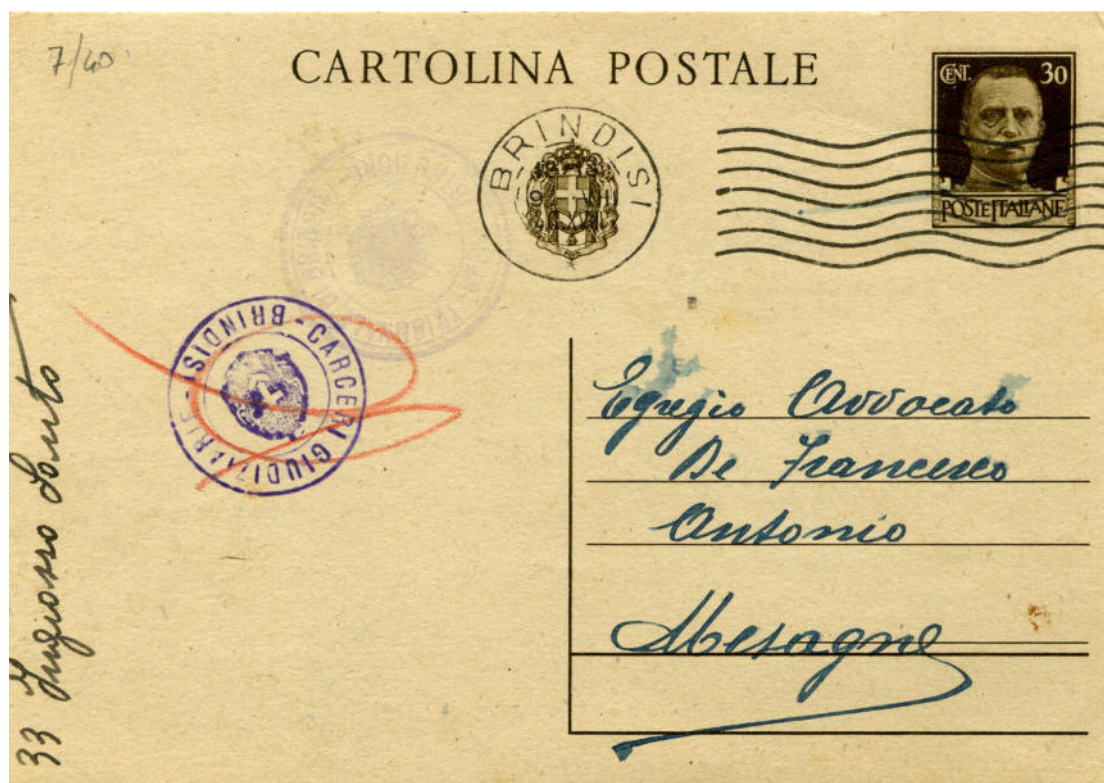 7/40
CARTOLINA POSTALE
CENT. 30
POSTE ITALIANE
BRINDISI
CARCERI GIUDIZIARIE - BRINDISI -
Egregio Avvocato
De Francesco
Antonio
Mesagne
33 Ingrosso